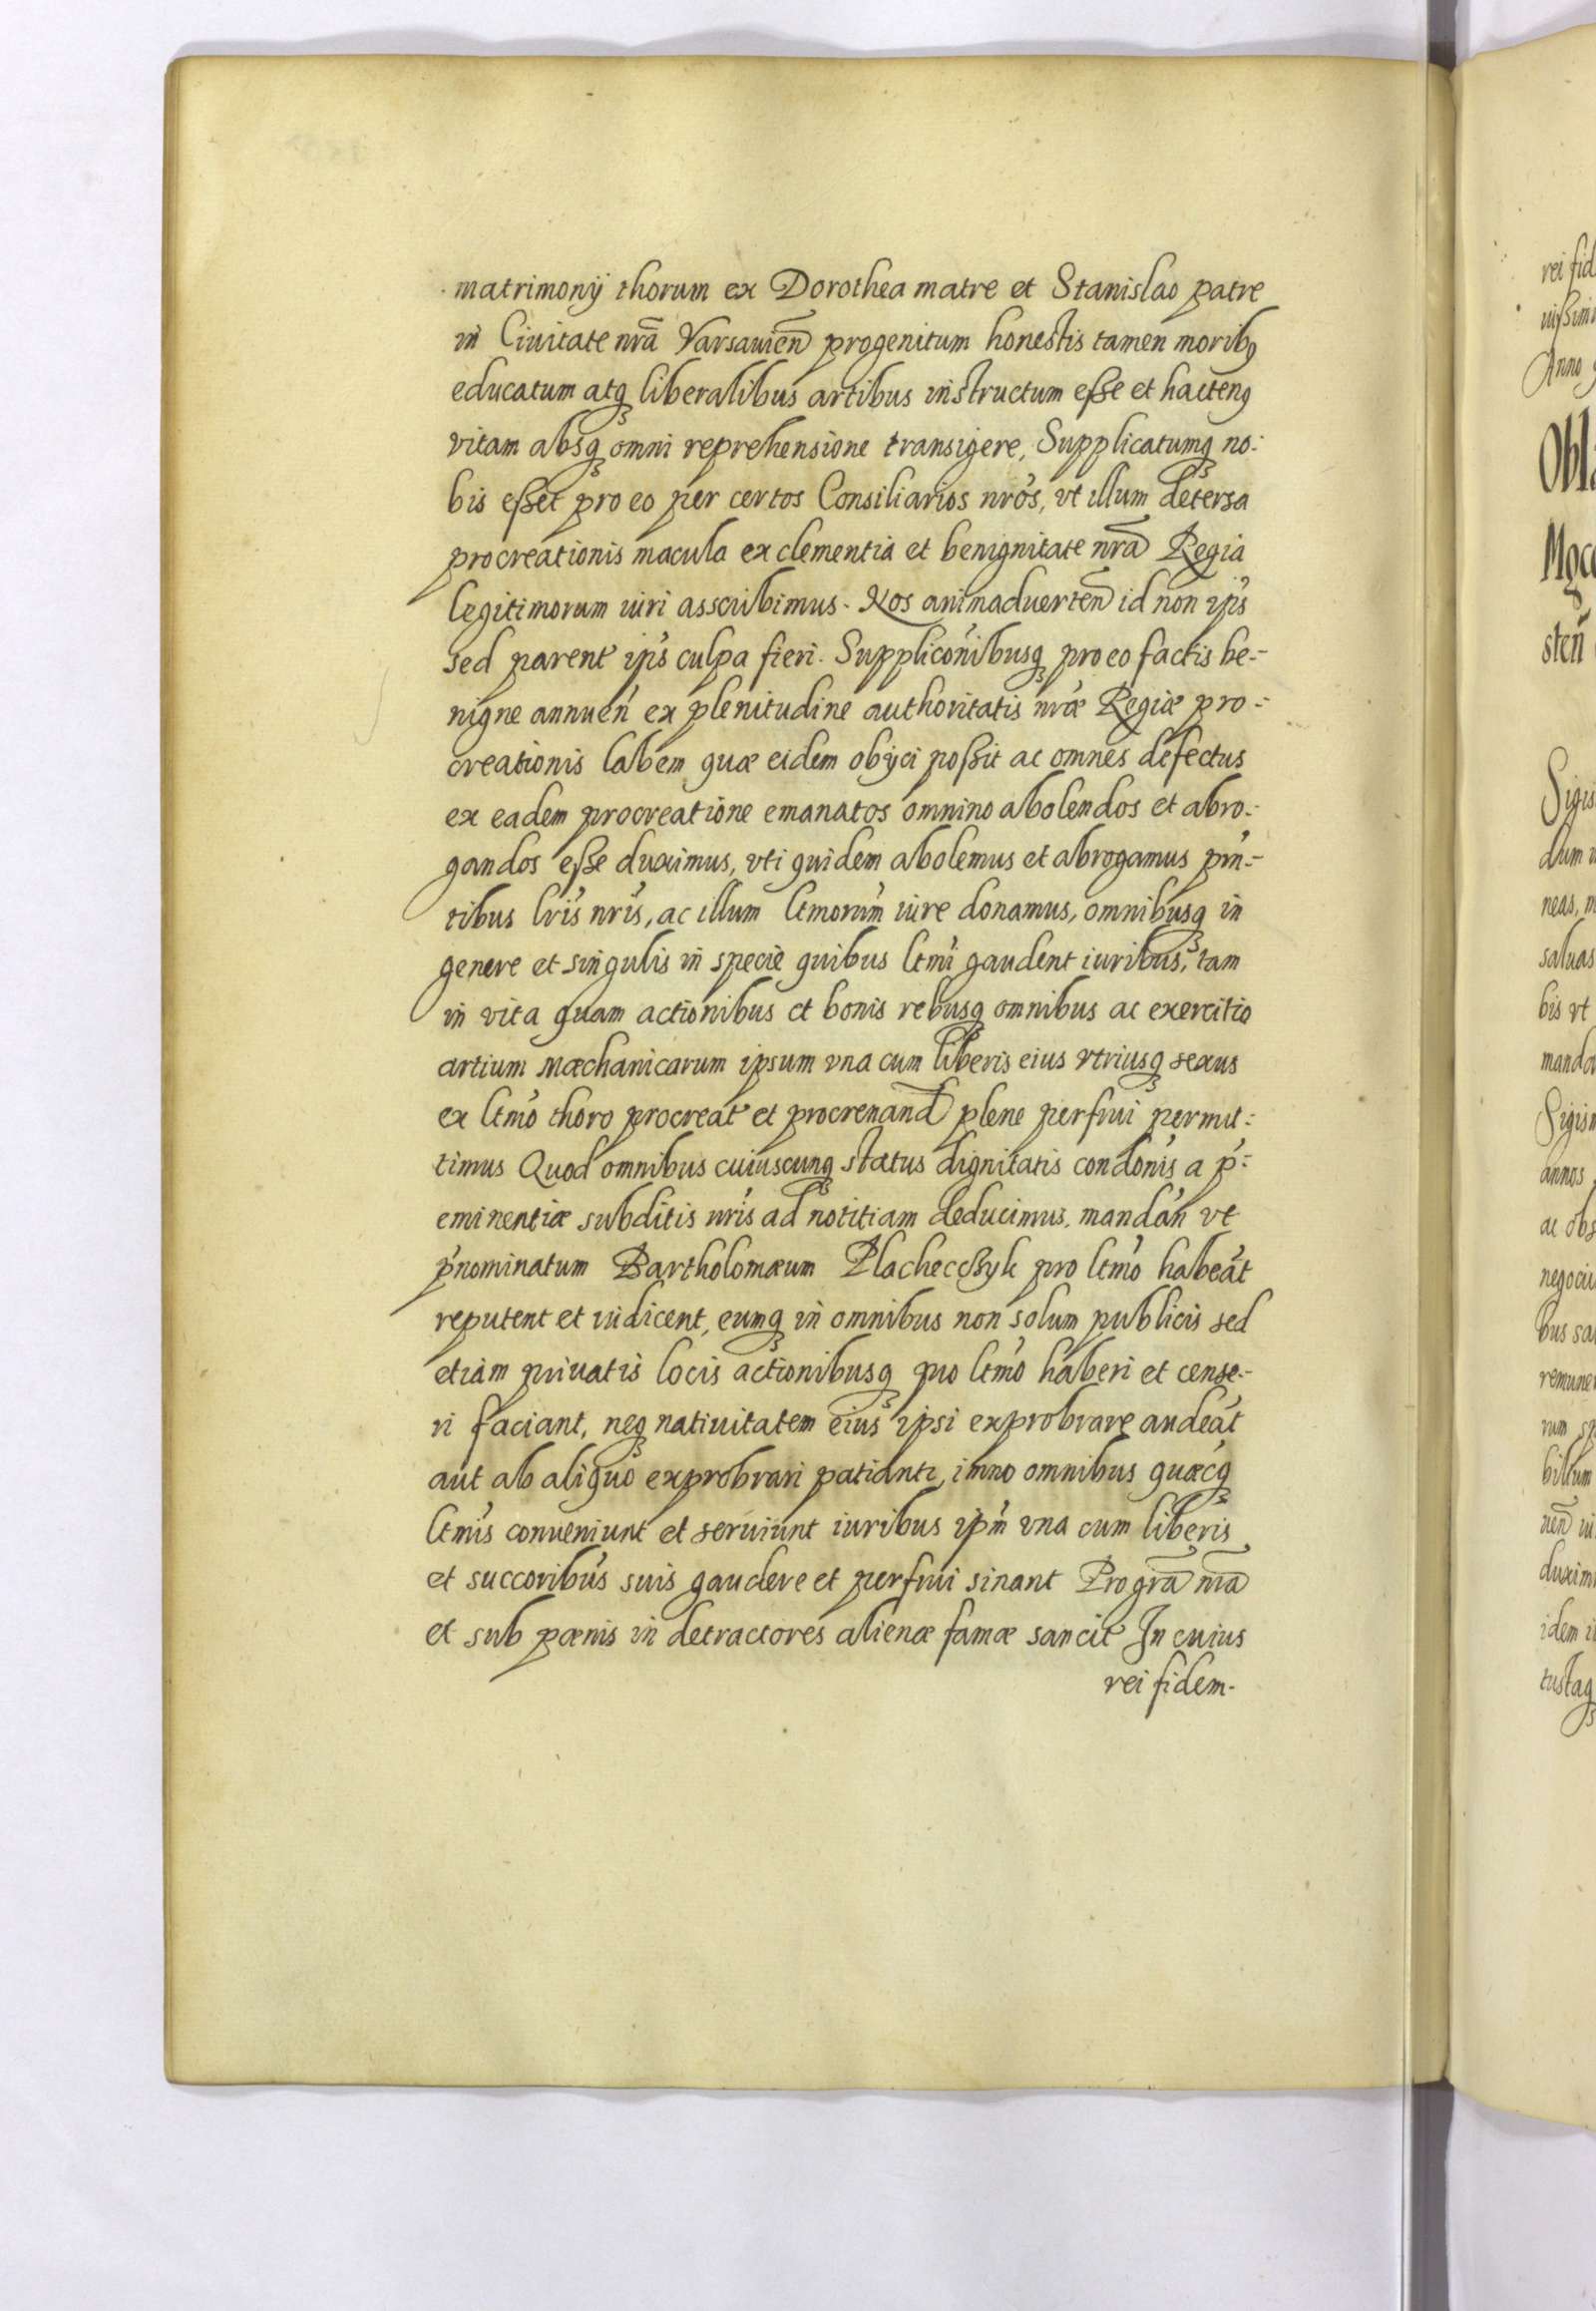 matrimonij thorum ex Dorothea matre et Stanislao patre
in Ciuitate nrã Varsauien̄ progenitum honestis tamen moribꝫ
educatum atqꝫ liberalibus artibus instructum eße et hactenꝰ
vitam absqꝫ omni reprehensione transigere, Supplicatumqꝫ no:
bis eßet pro eo per certos Consiliarios nrós, vt illum detersa
procreationis macula ex clementia et benignitate nrã Regia
legitimorum iuri asscribimus. Nos animaduerten̄ id non ips
sed parent ips culpa fieri. Suppliconibusqꝫ pro eo factis be-
nigne annuen ex plenitudine authoritatis nræ Regiæ pro-
creationis labem quæ eidem obijci poßit ac omnes defectus
ex eadem procreatione emanatos omnino abolendos et abro-
gandos eße duximus, vti quidem abolemus et abrogamus pñ-
tibus lris nris, ac illum ltmorum iure donamus, omnibusqꝫ in
genere et singulis in specie quibus ltmi gaudent iuribus, tam
in vita quam actionibus et bonis rebusqꝫ omnibus ac exercitio
artium mæchanicarum ipsum vna cum liberis eius vtriusqꝫ sexus
ex ltmo thoro procreat et procreand plene perfrui permit:
timus Quod omnibus cuiuscunqꝫ status dignitatis condonis a p:
eminentiæ subditis nris ad notitiam deducimus. mandan vt
pnominatum Bartholomæum Plachecżyk pro ltmo habeat
reputent et iudicent, eumqꝫ in omnibus non solum publicis sed
etiam priuatis locis actionibusqꝫ pro ltmo haberi et cense-
ri faciant, neqꝫ natiuitatem eius ipsi exprobrare audeat
aut ab aliquo exprobrari patiantr, imno omnibus quæcqꝫ
ltmis conueniunt et seruiunt iuribus ipm vna cum liberis
et succoribus suis gaudere et perfrui sinant Pro grã nrã
et sub pænis in detractores alienæ famæ sancit In cuius
rei fidem.
rei fid
Anno
Obl
sten
Sigis
dum
neas, m
saluas
bis vt
manda
Sigism
annos
ac obs
negociis
bus sa
remune
rum sp
billum
duxim
idem i